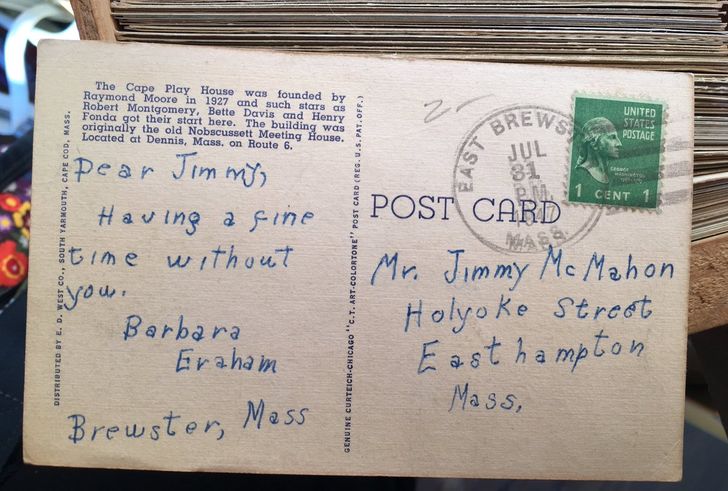 The Cape Play House was founded by
Raymond Moore in 1927 and such stars as
Robert Montgomery, Bette Davis and Henry
Fonda got their start here. The building was
originally the old Nobscussett Meeting House.
Located at Dennis, Mass. on Route 6.
Dear Jimmy,
Having a fine
time without
you.
Barbara
Graham
Brewster, Mass
DISTRIBUTED BY E. D. WEST CO., SOUTH YARMOUTH, CAPE COD, MASS.
GENUINE CURTEICH-CHICAGO "C.T. ART-COLORTONE" POST CARD (REG. U.S. PAT. OFF.)
EAST BREWS
JUL
31
P.M.
MASS.
UNITED
STATES
POSTAGE
GEORGE
WASHINGTON
1 CENT 1
POST CARD
Mr. Jimmy McMahon
Holyoke Street
Easthampton
Mass.